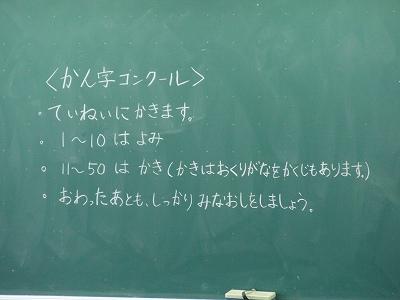 〈かん字コンクール〉
。ていねいにかきます。
。1〜10 は よみ
。11〜50 は かき(かきはおくりがなをかくじもあります。)
。おわったあとも、しっかり みなおしをしましょう。